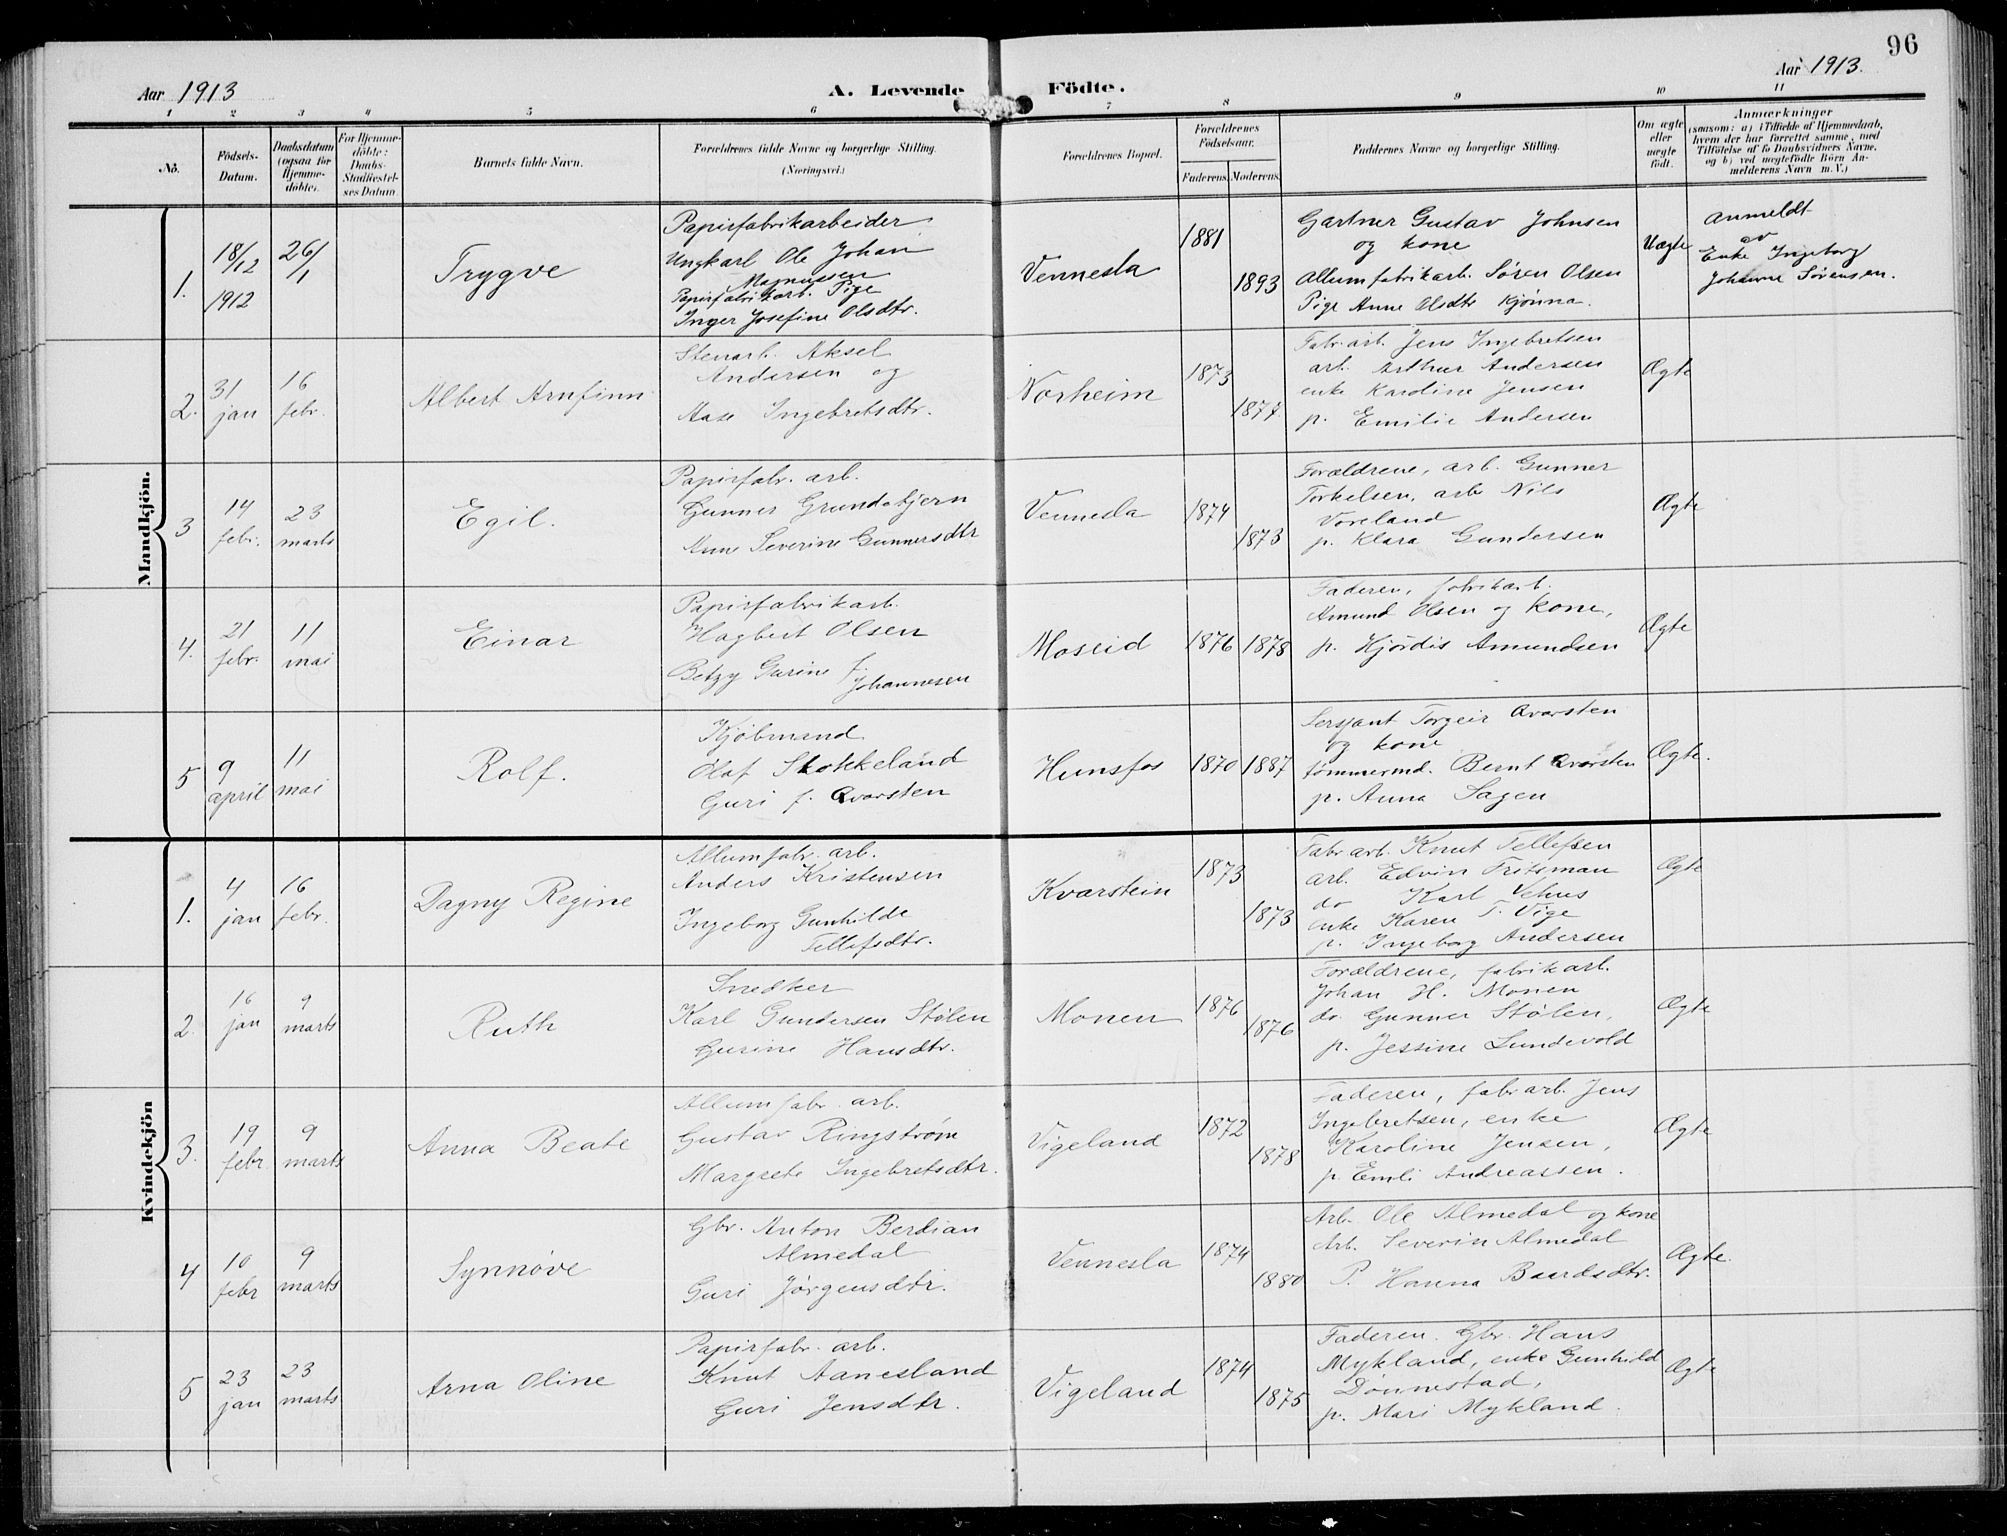 96
Aar 1913
A. Levende Födte.
Aar 1913.
1 2 3 4 5 6 7 8 9 10 11
No.
Födsels-Datum.
Daabsdatum (ogsaa for Hjemme-döbte).
For Hjemme-döbte: Daabs-Stadfæstel-ses Datum
Barnets fulde Navn.
Forældrenes fulde Navne og borgerlige Stilling.
(Næringsvei.)
Forældrenes Bopæl.
Forældrenes Födselsaar.
Faderens. Moderens.
Faddernes Navne og borgerlige Stilling.
Om ægte eller uægte født.
Anmærkninger
(saasom: a) i Tilfælde af Hjemmedaab,
hvem der har forrettet samme, med
Tilföielse af to Daabsvidners Navne,
og b) ved uægtefödte Börn An-
melderens Navn m.V.)
Mandkjön.
1.
18/12 1912
26/1
Trygve
Papirfabrikarbeider
Ungkarl Ole Johan
Magnussen
Papirfabrikarb. Pige
Inger Josefine Olsdtr.
Vennesla
1881
1893
Gartner Gustav Johnsen
og kone
Allumfabrikarb. Søren Olsen
Pige Anne Olsdtr Kjønna.
Uægte
Anmeldt
av
Enke Ingeborg
Johanne Sørensen.
2.
31 jan
16 febr.
Albert Arnfinn
Stenarb. Aksel
Andersen og
Aase Ingebretsdtr.
Norheim
1873
1877
Fabr. arb. Jens Ingebretsen
arb. Arthur Andersen
enke Karoline Jensen
p. Emilie Andersen
Ægte
3
14 febr.
23 marts
Egil.
Papirfabr. arb.
Gunner Grundetjern
Anne Severine Gunnersdtr
Vennesla
1874
1873
Forældrene, arb. Gunner
Torkelsen, arb Nils
Voreland
p. Klara Gundersen
Ægte
4.
21 febr.
11 mai
Einar
Papirfabrikarb.
Hagbert Olsen
Betzy Gurine f.
Johannesen
Moseid
1876
1878
Faderen, fabrikarb.
Amund Olsen og kone,
p. Hjördis Amundsen
Ægte
5
9 april
11 mai
Rolf.
Kjöbmand
Olaf Stokkeland
Guri f. Qvarsten
Hunsfos
1870
1887
Sersjant Torgeir Qvarsten
og kone
tømmermd. Bernt Qvarsten
p. Anna Sagen
Ægte.
Kvindekjön
1.
4 jan
16 febr.
Dagny Regine
Allumfabr. arb.
Anders Kristensen
Ingeborg Gunhilde
Tellefsdtr.
Kvarstein
1873
1873
Fabr arb. Knut Tellefsen
arb. Edvin Fritsman
do Karl Vehus
enke Karen T. Vige
p. Ingeborg Andersen
Ægte
2.
16 jan
9 marts
Ruth
Snedker
Karl Gundersen Stølen
Gurine Hansdtr.
Monen
1876
1876
Forældrene, fabrikarb.
Johan H. Monen
do. Gunner Stølen,
p. Jessine Lundevold
Ægte
3.
19 febr
9 marts
Anna Beate
Allumfabr. arb.
Gustav Ringstrøm
Margrete Ingebretsdtr.
Vigeland
1872
1878
Faderen, fabr arb. Jens
Ingebretsen, enke
Karoline Jensen,
p. Emli Andreassen.
Ægte
4
10 febr
9 marts
Synnøve
Gbr. Anton Berdian
Almedal
Guri Jørgensdtr.
Vennesla
1874
1880
Arb. Ole Almedal og kone
Arb. Severin Almedal
P. Hanna Baardsdtr.
Ægte.
5
23 jan
23 marts
Arna Oline
Papirfabr. arb.
Knut Aanesland
Guri Jensdtr.
Vigeland
1874
1875
Faderen. Gbr. Hans
Mykland, enke Gunhild
Dønnestad,
p. Mari Mykland.
Ægte